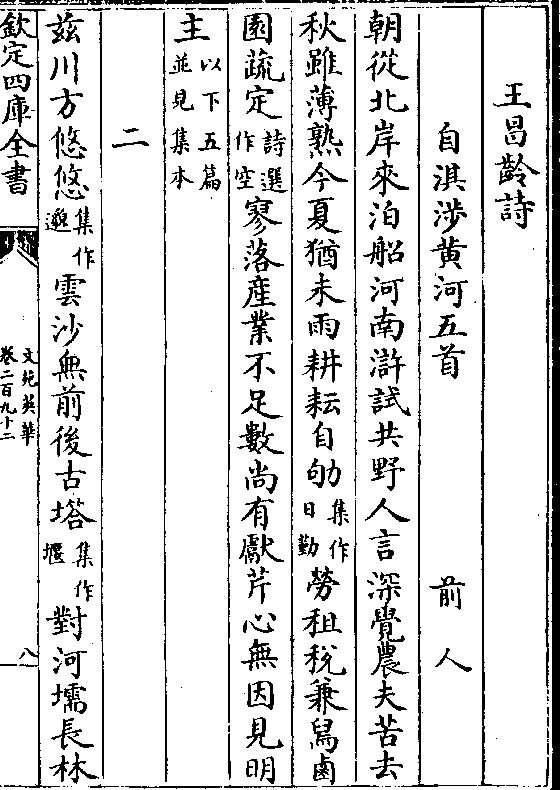 王昌齡詩
自淇涉黄河五首 前人
朝從北岸來泊船河南滸試共野人言深覺農夫苦去
秋雖薄熟今夏猶未雨耕耘自劬集作日勤勞租稅兼舄鹵
園蔬定詩選作空寥落産業不足數尚有獻芹心無因見明
主以下五篇並見集本
二
兹川方悠悠集作邈雲沙無前後古塔集作堰對河壖長林
欽定四庫全書
文苑英華
卷二百九十二
八